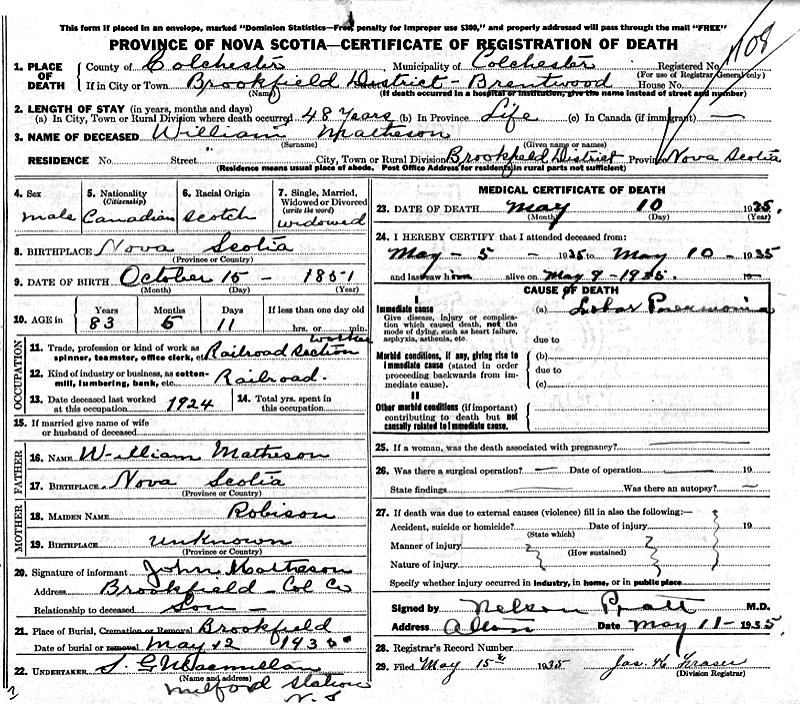 This form if placed in an envelope, marked "Dominion Statistics—Free, penalty for improper use $300," and properly addressed will pass through the mail "FREE"
PROVINCE OF NOVA SCOTIA—CERTIFICATE OF REGISTRATION OF DEATH
1. PLACE OF DEATH County of Colchester Municipality of Colchester Registered No. 108
(For use of Registrar General only)
If in City or Town Brookfield District - Brentwood House No.
(Name) (If death occurred in a hospital or institution, give the name instead of street and number)
2. LENGTH OF STAY (in years, months and days)
(a) In City, Town or Rural Division where death occurred 48 Years (b) In Province Life (c) In Canada (if immigrant) —
3. NAME OF DECEASED William Matheson
(Surname) (Given name or names)
RESIDENCE No. " Street City, Town or Rural Division Brookfield District Province Nova Scotia
(Residence means usual place of abode. Post Office Address for residents in rural parts not sufficient)
4. Sex male
5. Nationality (Citizenship) Canadian
6. Racial Origin Scotch
7. Single, Married, Widowed or Divorced (write the word) widowed
8. BIRTHPLACE Nova Scotia
(Province or Country)
9. DATE OF BIRTH October 15 - 1851
(Month) (Day) (Year)
10. AGE in Years 83 Months 6 Days 11 If less than one day old
hrs. or min.
OCCUPATION
11. Trade, profession or kind of work as spinner, teamster, office clerk, etc. Railroad Section worker
12. Kind of industry or business, as cotton-mill, lumbering, bank, etc. Railroad.
13. Date deceased last worked at this occupation 1924 14. Total yrs. spent in this occupation.
15. If married give name of wife or husband of deceased
FATHER
16. NAME William Matheson
17. BIRTHPLACE Nova Scotia
(Province or Country)
MOTHER
18. MAIDEN NAME Robison
19. BIRTHPLACE unknown
(Province or Country)
20. Signature of informant John Matheson
Address Brookfield - Col Co
Relationship to deceased Son -
21. Place of Burial, Cremation or Removal Brookfield
Date of burial or removal May 12 1935
22. UNDERTAKER S. G McMillan
(Name and address)
Milford Station
N. S
MEDICAL CERTIFICATE OF DEATH
23. DATE OF DEATH May 10 1935.
(Month) (Day) (Year)
24. I HEREBY CERTIFY that I attended deceased from:
May - 5 - 1935 to May 10 - 1935
and last saw him alive on May 9 - 1935. 19—
CAUSE OF DEATH
I
Immediate cause (a) Lobar Pneumonia
Give disease, injury or complication which caused death, not the mode of dying, such as heart failure, asphyxia, asthenia, etc.
due to
Morbid conditions, if any, giving rise to immediate cause (stated in order proceeding backwards from immediate cause).
(b)
due to
(c)
II
Other morbid conditions (if important) contributing to death but not causally related to immediate cause.
25. If a woman, was the death associated with pregnancy? —
26. Was there a surgical operation? — Date of operation — 19
State findings Was there an autopsy? —
27. If death was due to external causes (violence) fill in also the following:—
Accident, suicide or homicide? Date of injury 19
(State which)
Manner of injury
(How sustained)
Nature of injury
Specify whether injury occurred in industry, in home, or in public place
Signed by Nelson Pratt M.D.
Address Date May 11 - 1935.
28. Registrar's Record Number
29. Filed May 15th 1935 Jas. H Fraser
(Division Registrar)